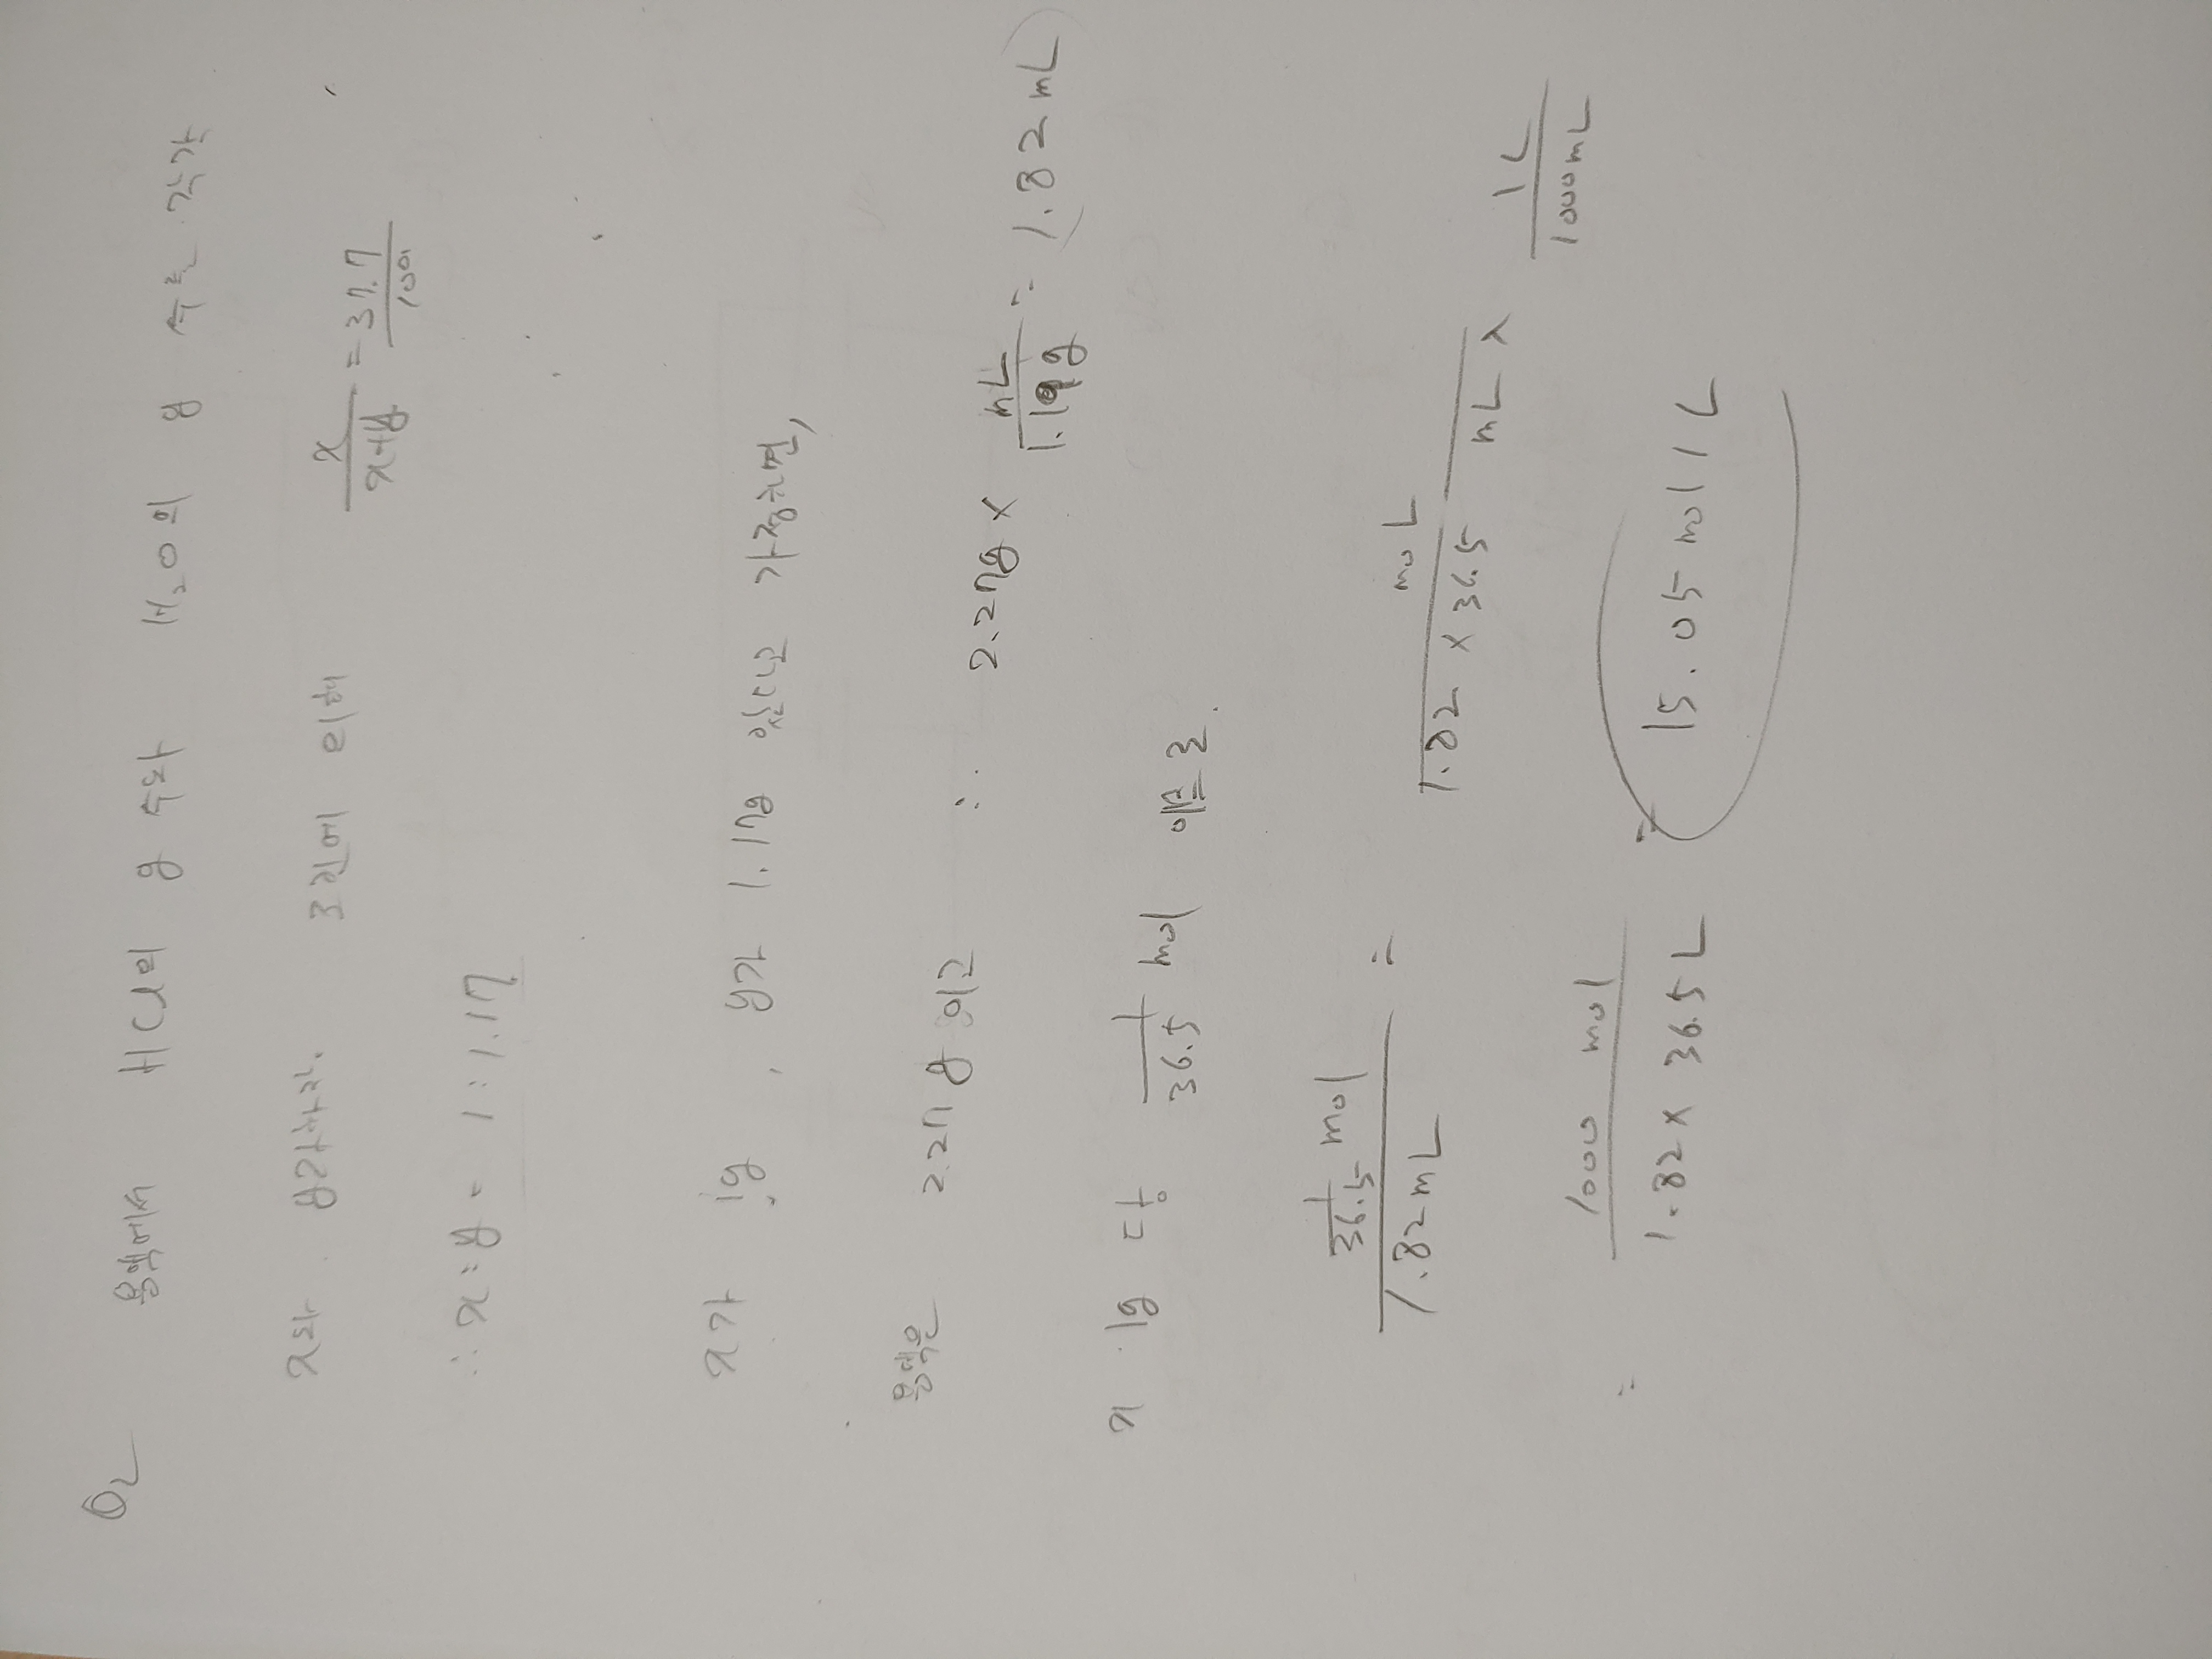 Q2 용액에서 HCl의 g 수와 H₂O의 g 수를 각각
x와 y라하자. 조건에 의해 x/(x+y) = 37.7/100
∴ x:y = 1:1.17
x가 1g, y가 1.17g 있다고 가정하면,
용액은 2.27g 이고 ∴ 2.27g × mL/1.19g = 1.82 mL
x 1g 당 1/36.5 mol 이므로.
(1/36.5 mol)/(1.82 mL) = mol/(1.82 × 36.5 mL × 1L/1000mL)
= 1000 mol/(1.82 × 36.5 L) = 15.05 mol/L